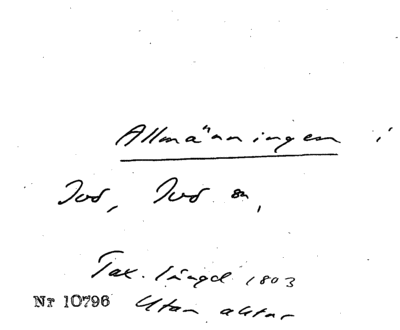 Allmänningen i
Ivo, Ivo sn,
Tax. längd 1803
Nr 10796 Utan aktnr